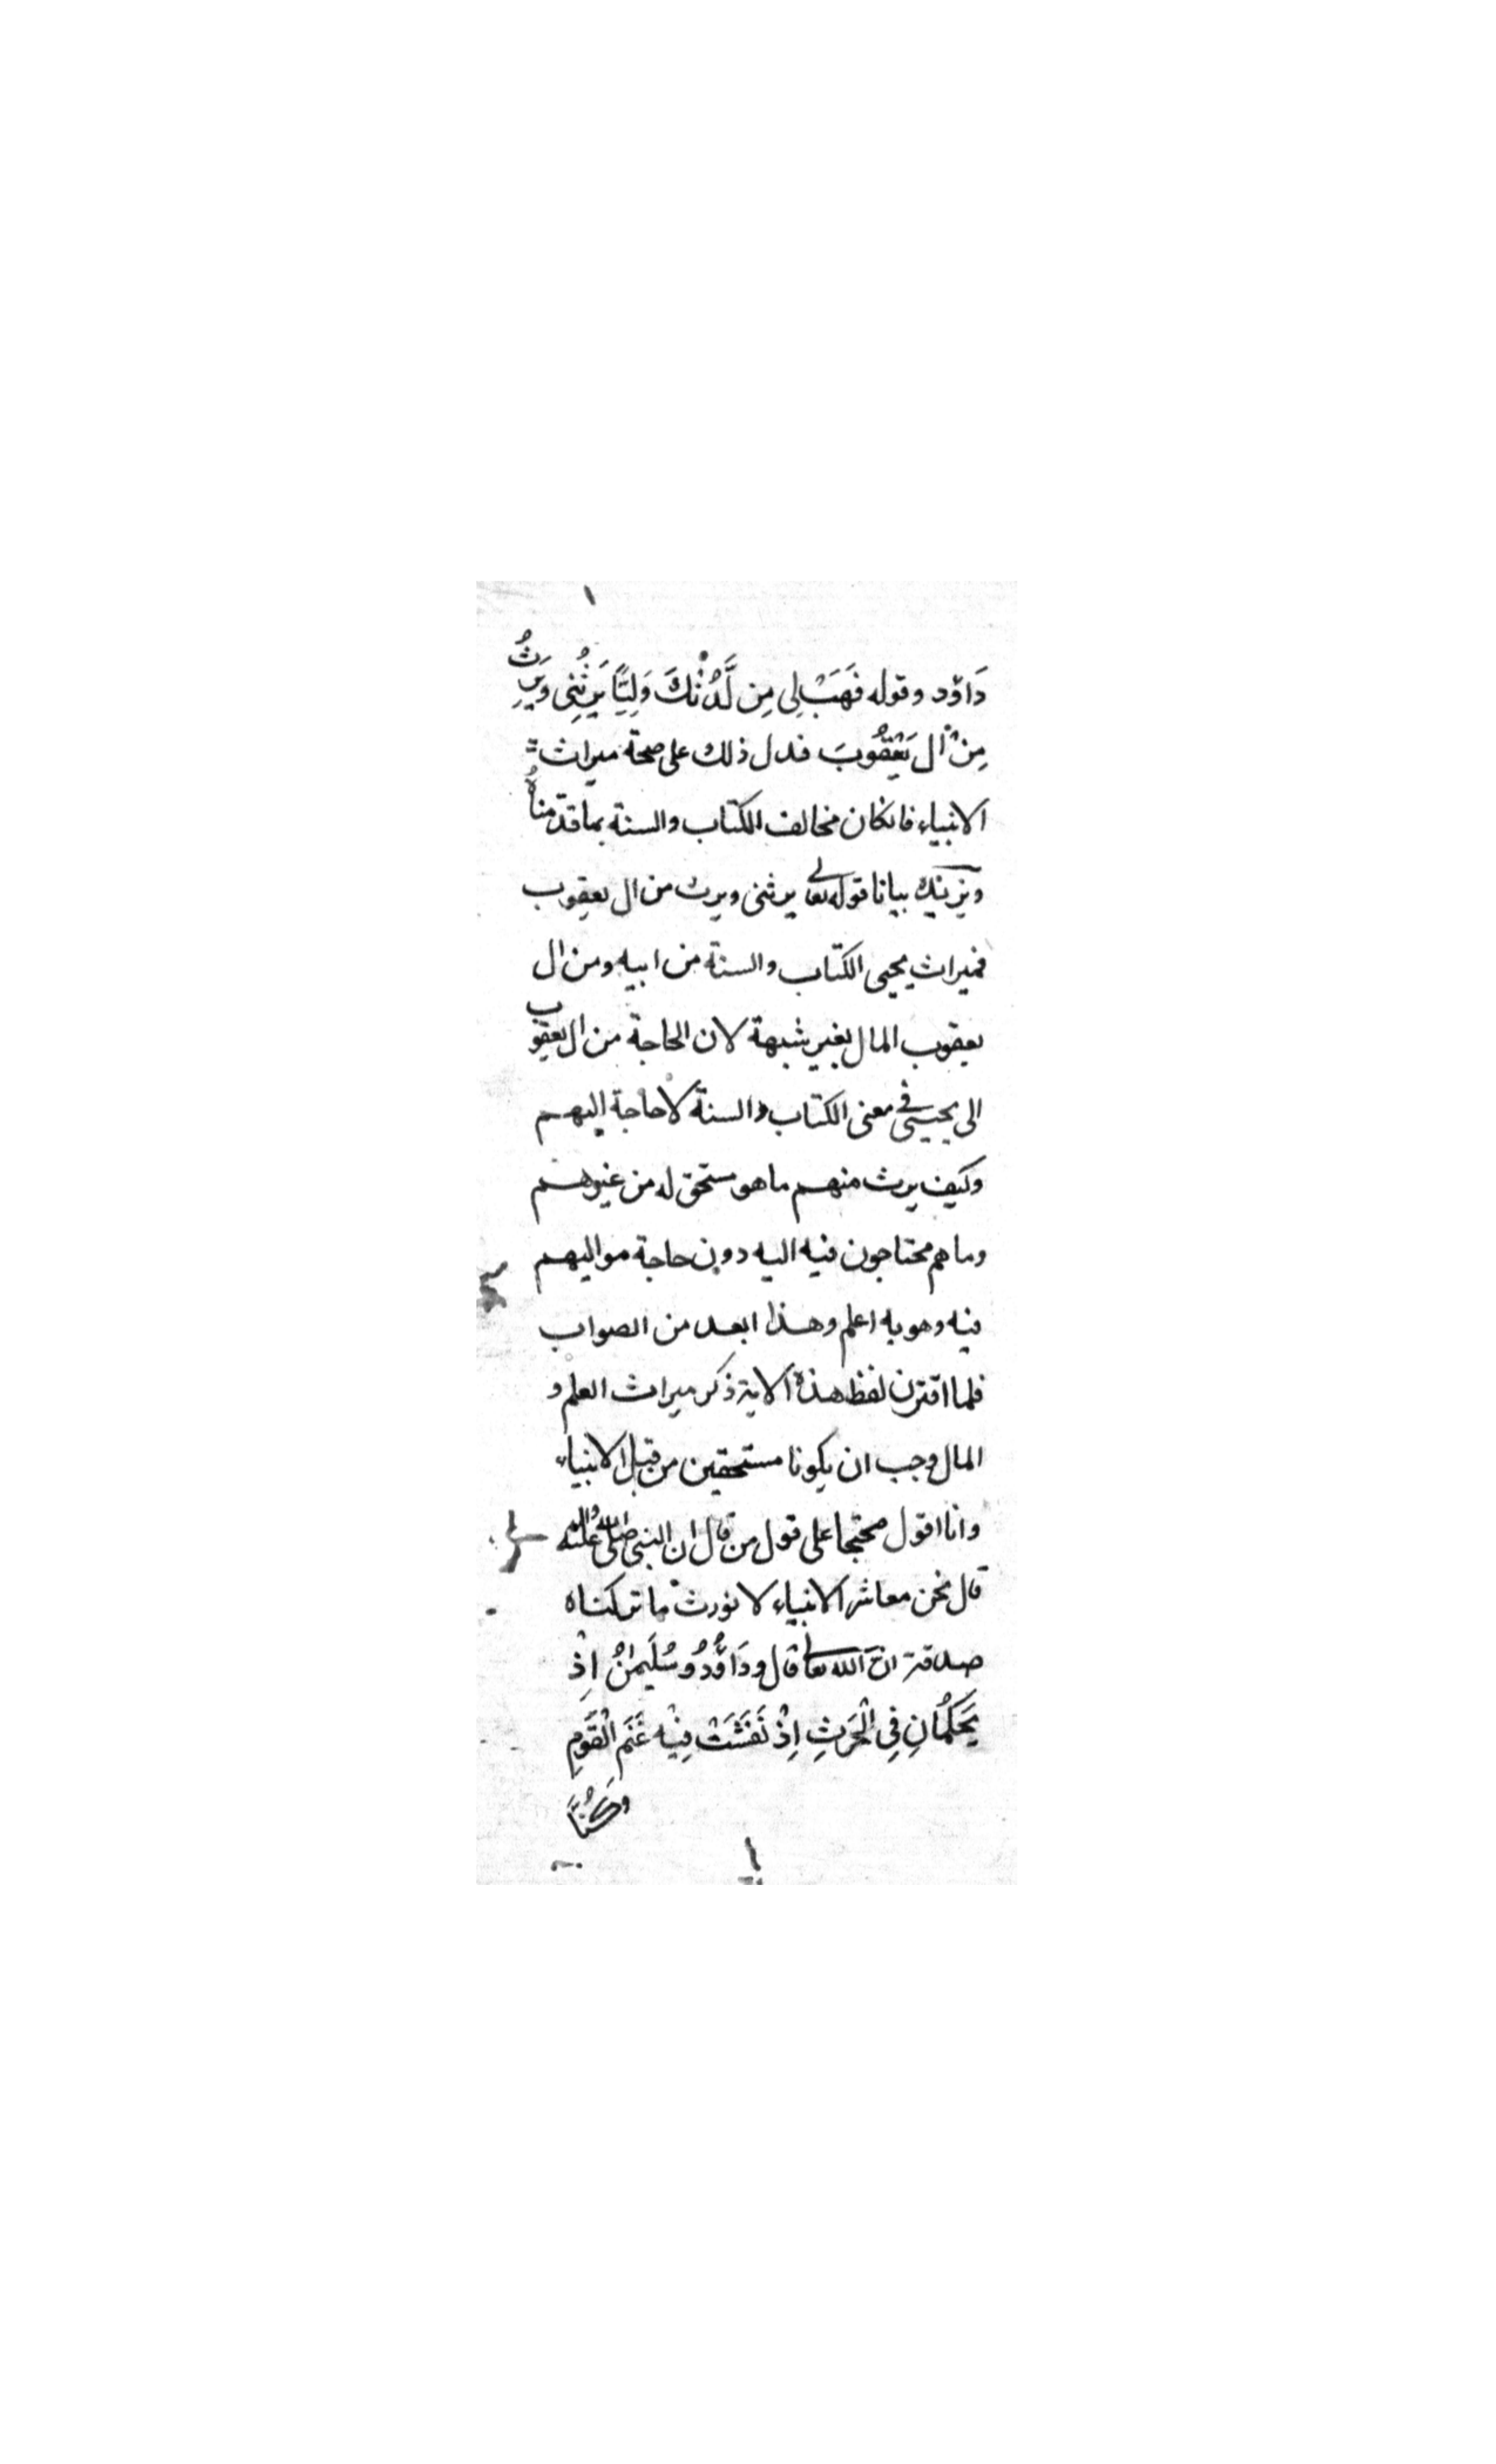 دَاوٗد وقوله فَهَبْ لِى مِن لَّدُنْكَ وَلِيًّا يَرِثُنِى وَيَرِثُ
مِنْ اٰلِ يَعْقُوبَ فدل ذلك على صحة ميراث
الانبياء فانكان مخالف الكتاب والسنة بما قدّمناهُ
ويزيدك بيانا قوله تعالى يرثنى ويرث من ال يعقوب
فميراث يحيى الكتاب والسنة من ابيه ومن ال
يعقوب المال بغير شبهة لان الحاجة من ال يعقوب
الى يحيى فى معنى الكتاب والسنة لا حاجة اليهم
وكيف يرث منهم ما هو مستحق له من غيرهم
وما هم محتاجون فيه اليه دون حاجة مواليهم
فيه وهو به اعلم وهذا ابعد من الصواب
فلما اقترن لفظ هذه الاية ذكر ميراث العلم و
المال وجب ان يكونا مستحقين من قبل الانبياء
وانا اقول محتجا على قول من قال ان النبى صلى الله عليه واله
قال نحن معاشر الانبياء لا نورث ما تركناه
صدقة انّ الله تعالى قال ودَاوٗدُ وسُلَيمٰنُ اِذْ
يَحْكُمَانِ فِى الْحَرْثِ اِذْ نَفَشَتْ فِيْهِ غَنَمُ الْقَوْمِ
وَكُنَّا